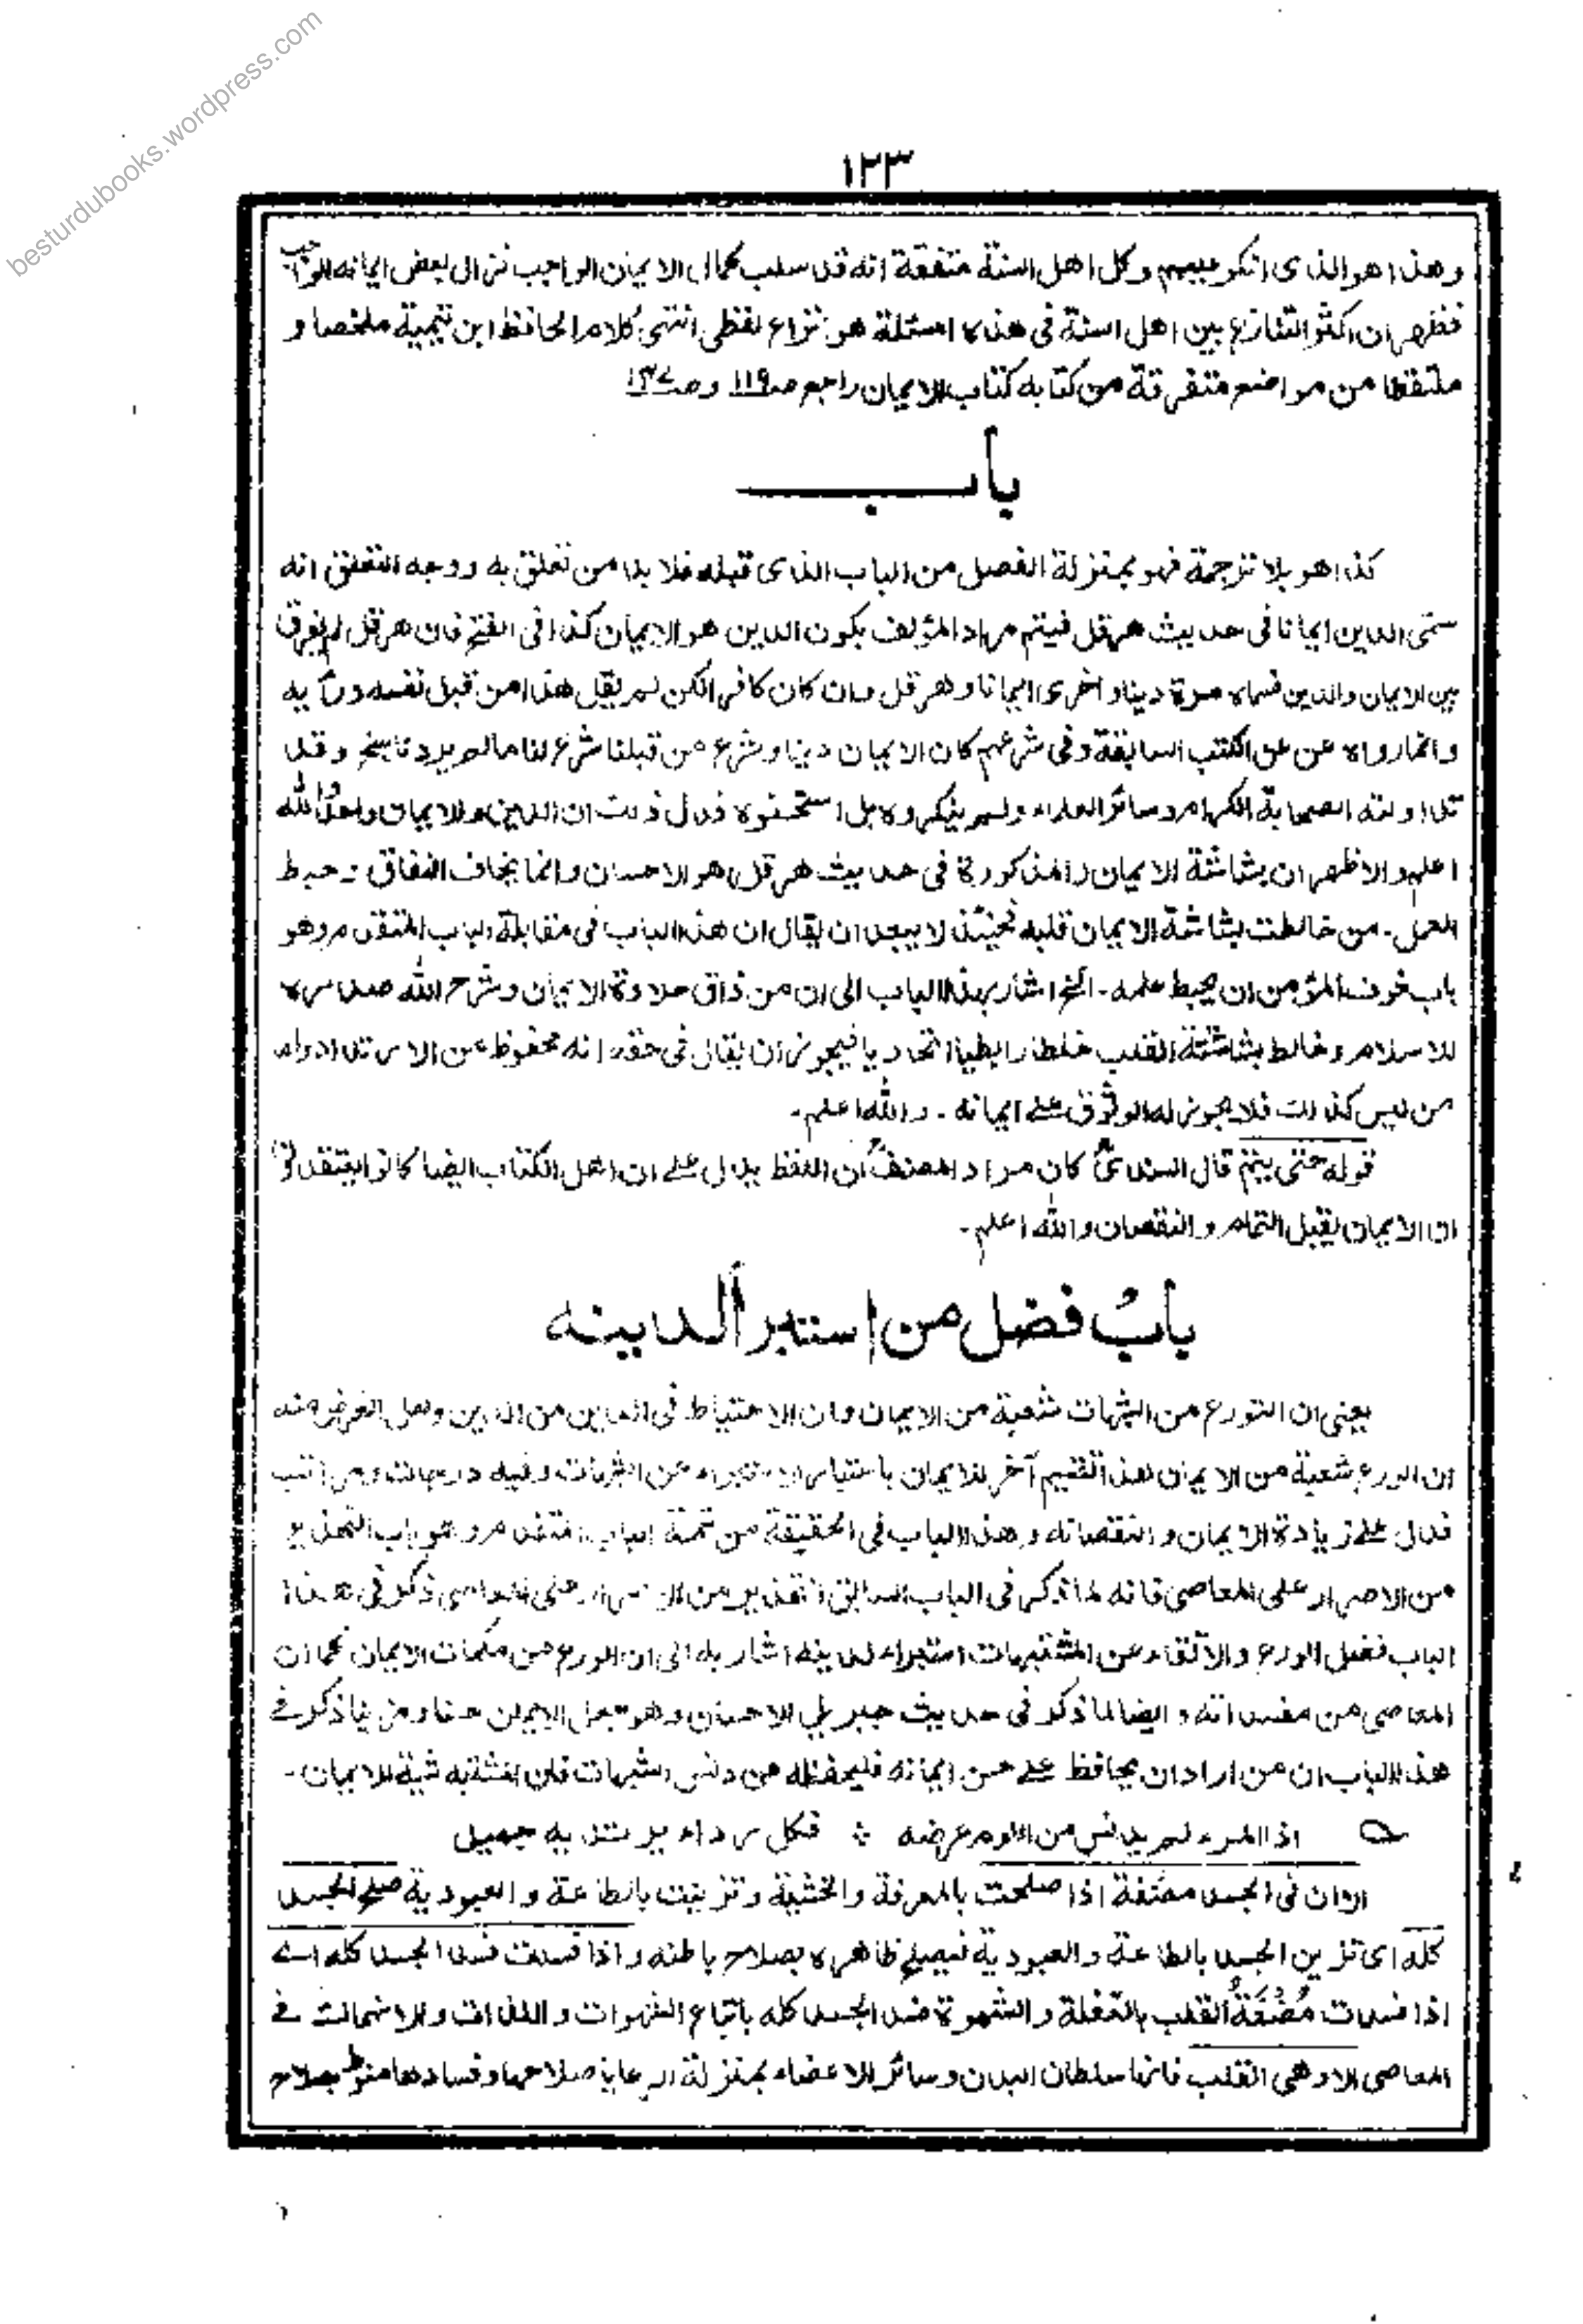 besturdubooks.wordpress.com
١٢٣
وهذا هو الذى انكر عليهم وكل اهل السنة متفقة انه قد سلب كمال الايمان الواجب فزال بعض ايمانه الواجب
فظهر ان اكثر التنازع بين اهل السنة فى هذه المسئلة هو نزاع لفظى انتهى كلام الحافظ ابن تيمية ملخصا و
ملتقطا من مواضع متفرقة من كتابه كتاب الايمان راجع صـ١١٩ وصـ
باب
كذا هو بلا ترجمة فهو بمنزلة الفصل من الباب الذى قبله فلا بد من تعلق به ووجه التعلق انه
سمى الدين ايمانا فى حديث هرقل فيتم مراد المؤلف بكون الدين هو الايمان كذا فى الفتح فان هرقل لم يفرق
بين الايمان والدين فسماه مرة دينا واخرى ايمانا وهرقل وان كان كافرا لكن لم يقل هذا من قبل نفسه ورأيه
وانما رواه عن الكتب السابقة وفى شرعهم كان الايمان دينا وشرع من قبلنا شرع لنا ما لم يرد ناسخ وقد
تداولته الصحابة الكرام وسائر العلماء ولم ينكروه بل استحسنوه فدل ذلك ان الدين والايمان واحد والله
اعلم والاظهر ان بشاشة الايمان المذكورة فى حديث هرقل هو الاحسان وانما يخاف النفاق وحبط
العمل - من خالطت بشاشة الايمان قلبه فحينئذ لا يبعد ان يقال ان هذا الباب فى مقابلة الباب المتقدم وهو
باب خوف المؤمن ان يحبط عمله - الخ اشار بهذا الباب الى ان من ذاق حلاوة الايمان وشرح الله صدره
للاسلام وخالط بشاشته القلب خلطا رابطيا اتحاديا فيجوز ان يقال فى حقه انه محفوظ عن الارتداد واما
من ليس كذلك فلا يجوز له الوثوق على ايمانه - والله اعلم -
قوله حتى يتم قال السندىؒ كان مراد المصنفؒ ان اللفظ يدل على ان اهل الكتاب ايضا كانوا يعتقدون
ان الايمان يقبل التمام والنقصان والله اعلم -
بابُ فضل من استبرأ لدينه
يعنى ان التورع من الشبهات شعبة من الايمان وان الاحتياط فى الدين من الدين ولعل الغرض منه
ان الورع شعبة من الايمان هذا تقسيم آخر للايمان باعتبار الاستبراء عن الشبهات وفيه درجات ومراتب
فدل على زيادة الايمان والنقصانه وهذا الباب فى الحقيقة من تتمة الباب المتقدم وهو باب التحذير
من الاصرار على المعاصى فانه لما ذكر فى الباب السابق التحذير من الاصرار على المعاصى ذكر فى هذا
الباب فضل الورع والاتقاء عن المشتبهات استبراء لدينه اشار به الى ان الورع من مكملات الايمان كما ان
المعاصى من مفسداته وايضا لما ذكر فى حديث جبريل الاحسان وهو جعل الايمان حسنا ذكر فى
هذا الباب ان من اراد ان يحافظ على حسن ايمانه فليحفظه من دنس الشبهات فان
اذا المرء لم يدنس من اللوم عرضه ÷ فكل رداء يرتديه جميل
الا وان فى الجسد مضغة اذا صلحت بالمعرفة والخشية وتزينت بالطاعة والعبودية صلح الجسد
كله اى تزين الجسد بالطاعة والعبودية فيصلح ظاهره بصلاح باطنه واذا فسدت فسد الجسد كله اى
اذا فسدت مُضْغَةُ القلب بالغفلة والشهوة فسد الجسد كله باتباع الشهوات واللذات والانهماك فى
المعاصى الا وهى القلب فانها سلطان البدن وسائر الاعضاء بمنزلة الرعايا صلاحها وفسادها منوط بصلاح